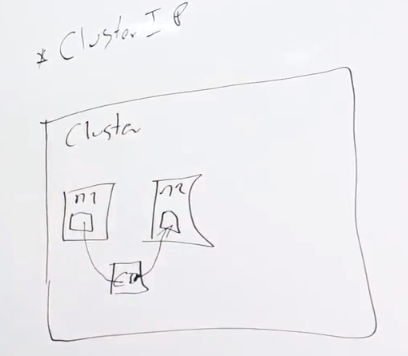 * Cluster IP
Cluster
n1 n2